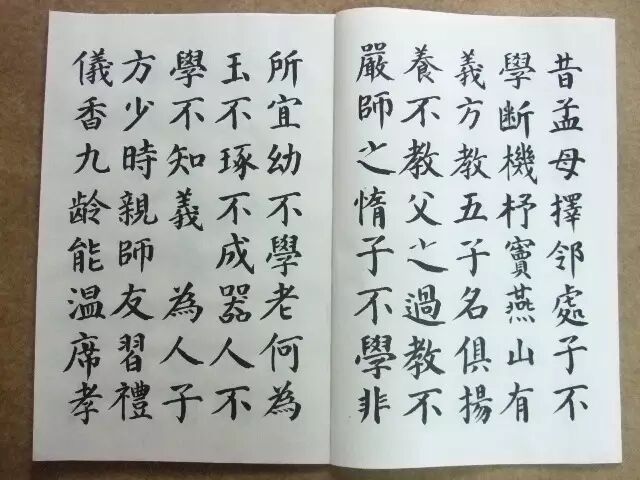 昔孟母擇邻處子不
學断機杼竇燕山有
義方教五子名俱揚
養不教父之過教不
嚴師之惰子不學非
所宜幼不學老何為
玉不琢不成器人不
學不知義為人子
方少時親師友習禮
儀香九龄能温席孝